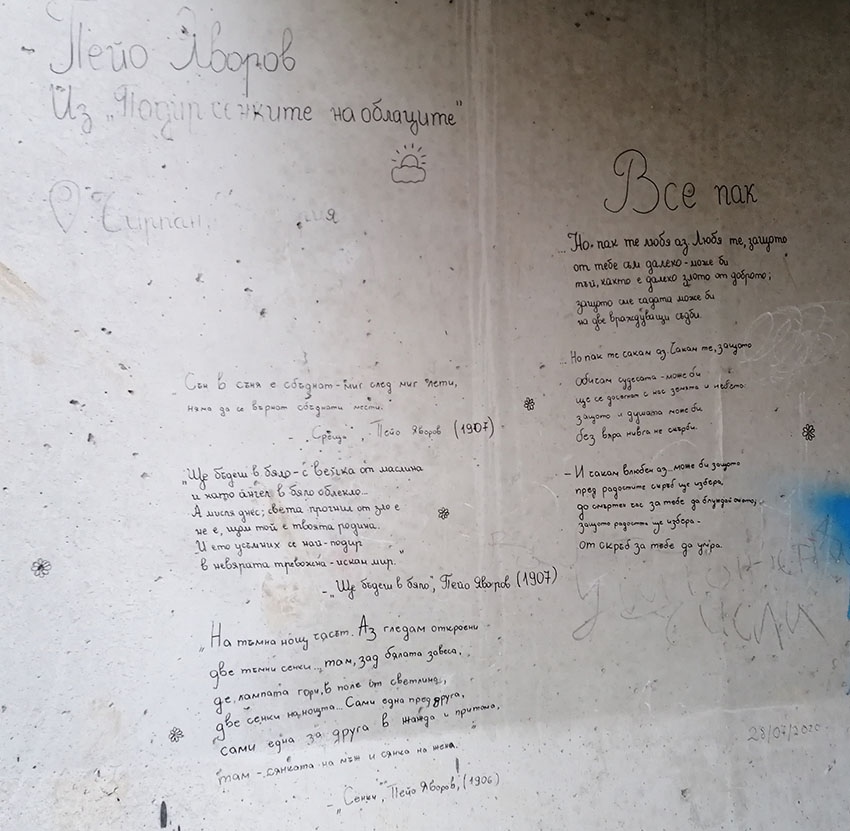 - Пейо Яворов
Из „Подир сенките на облаците"
Чирпан,
Все пак
... Но пак те любя аз. Любя те, защото
от тебе съм далеко - може би
тъй, както е далеко злото от доброто;
защото сме гадата може би
на две враждуващи съдби.
... Но пак те чакам аз. Чакам те, защото
очаквам чудесата - може би
ще се докоснат с нас земята и небето:
защото и душата може би
без вяра нивга не скърби.
- И чакам влюбен аз... може би защото
пред радостите скръб ще избера,
до смъртен час за тебе да блуждай окото;
защото радостта ще избера -
от скръб за тебе да умра.
Сън в съня е сбъднат - миг след миг лети,
няма да се върнат сбъднати мечти.
- „Среща", Пейо Яворов (1907)
„Ще бъдеш в бяло - с вейка от маслина
и като ангел в бяло облекло...
А мисля днес; света прогнил от зло е
не е, щом той е твоята родина.
И ето усъмних се най-подир
в невярата тревожна - искам мир."
- „Ще бъдеш в бяло", Пейо Яворов (1907)
„На тъмна нощ часът. Аз гледам откроени
две тъмни сенки... там, зад бялата завеса,
де лампата гори, в поле от светлина,
две сенки на нощта... Сами една пред друга,
сами една за друга в жажда и притома,
там - сянката на мъж и сянка на жена.
- „Сенки", Пейо Яворов, (1906)
28/07/2020